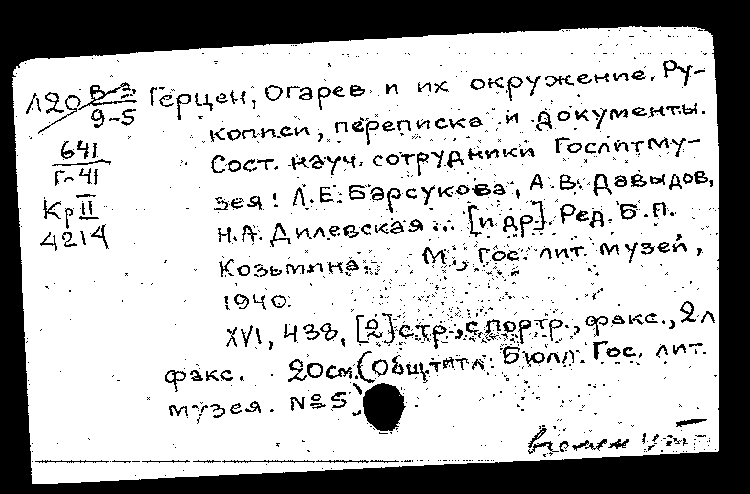 Л20 В-3 Герцен, Огарев и их окружение. Ру-
9-5 кописи, переписка и документы.
641 Сост. науч. сотрудники Гослитму-
Г-41 зея: Л.Е. Барсукова, А.В. Давыдов,
Кр II Н.А. Дилевская... [и др]. Ред. Б.П.
4214 Козьмина. М., Гос. лит. музей,
1940.
XVI, 438, [2] стр., с портр., факс., 2 л
факс. 20см. (Общ. титл. Бюлл. Гос. лит.
музея. №5)